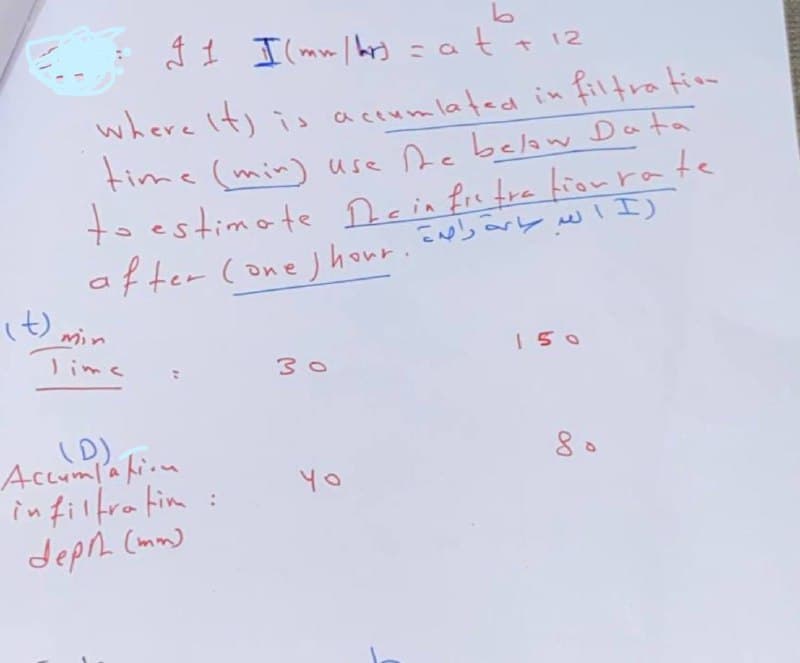 If I (mm/hr) = a t^b + 12
where (t) is accumlated infiltration
time (min) use the below Data
to estimate the infiltration rate
after (one) hour. (I) احسب
(t) min
Time : 30 150
(D)
Accumlation
infiltratin : 40 80
depth (mm)